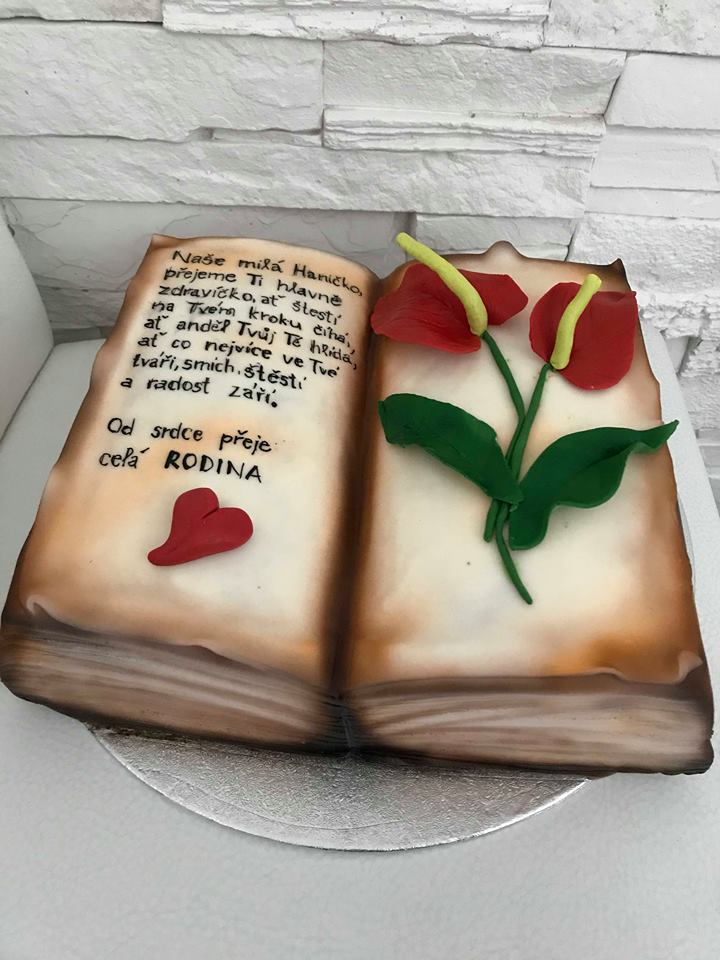 Naše milá Haničko,
přejeme Ti hlavně
zdravíčko, ať štestí
na Tvém kroku číhá,
ať anděl Tvůj Tě hlídá,
ať co nejvíce ve Tvé
tváři, smích, štěstí
a radost září.
Od srdce přeje
celá RODINA